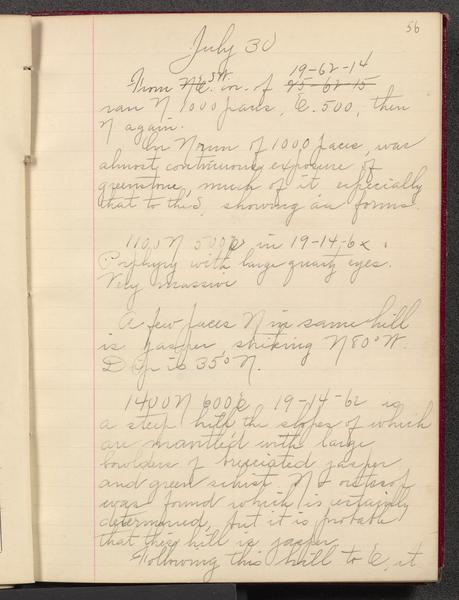 56
July 30
From NE. SW. cor. of 25-62-15 19-62-14
ran N 1000 paces, E. 500, then
N again.
In N run of 1000 paces, was
almost continuous exposure of
greenstone, much of it, especially
that to the S, showing forms.
1100 N 500 in 19-14-62.
Porphyry with large quartz eyes.
Very massive
A few paces N in same hill
is jasper, striking N 80° W.
Dip is 35° N.
1400 N 600 E 19-14-62 is
a steep hill the slopes of which
are mantled with large
bowlders of brecciated jasper
and green schist. N
was found which is
determined, but it is probable
that this hill is jasper.
Following this hill to E, it